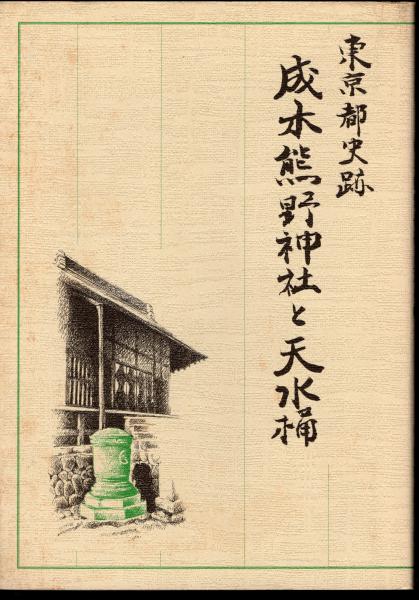 東京都史跡
成木熊野神社と天水桶